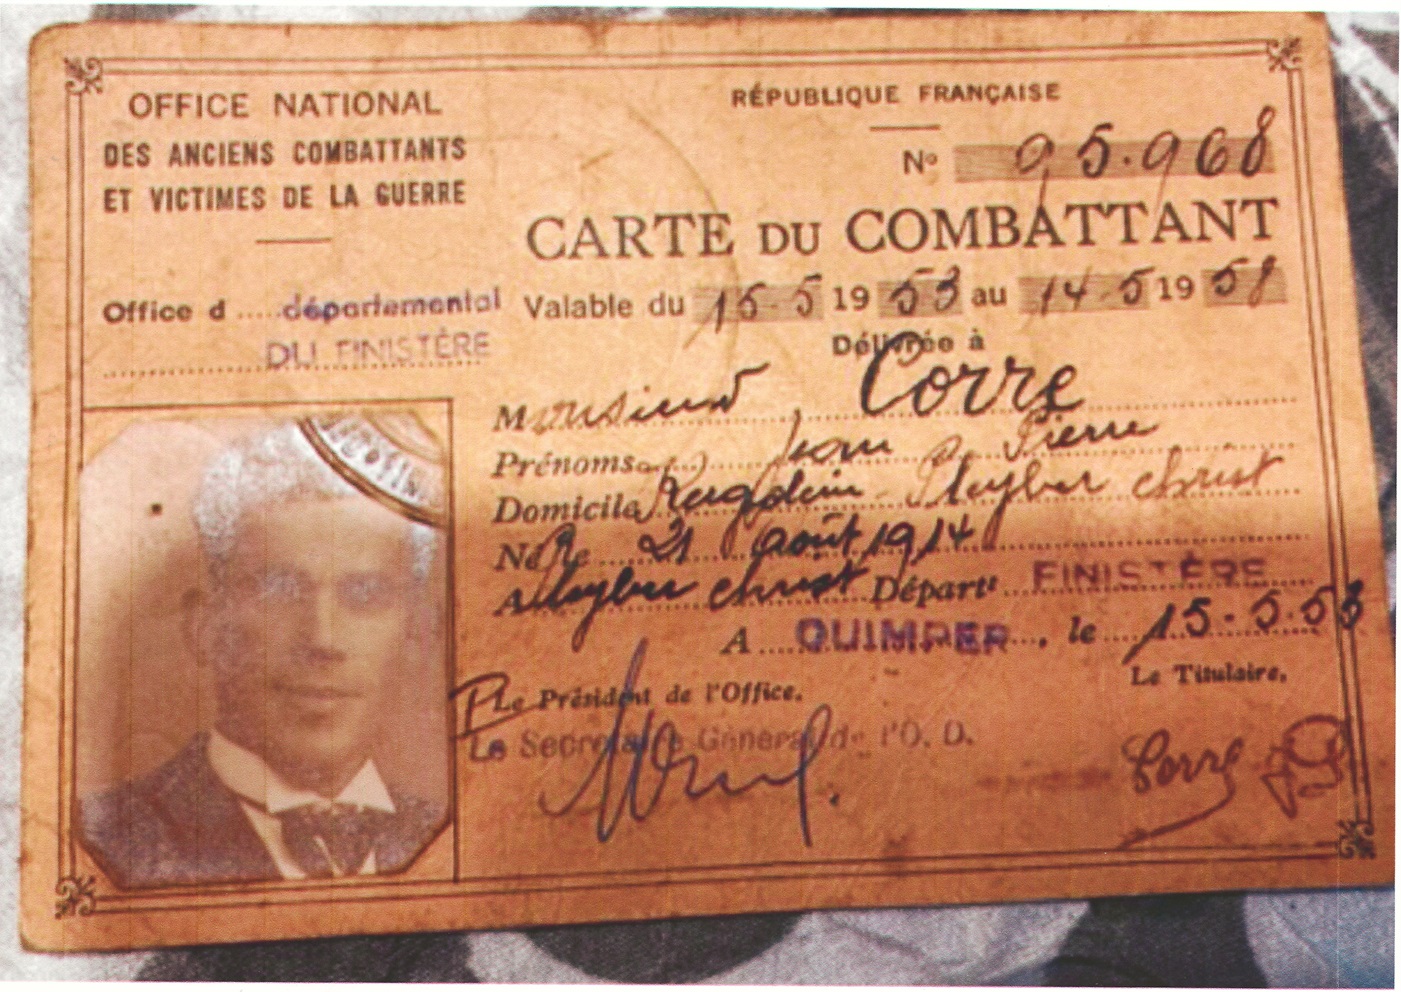 OFFICE NATIONAL
DES ANCIENS COMBATTANTS
ET VICTIMES DE LA GUERRE
RÉPUBLIQUE FRANÇAISE
No 95.968
CARTE DU COMBATTANT
Office d départemental
DU FINISTÈRE
Valable du 15-5 1953 au 14.5 1958
Délivrée à
Monsieur Corre
Prénoms Jean Pierre
Domicile Pleyber christ
Né le 21 août 1914
A Pleyber christ Départt FINISTÈRE
A QUIMPER, le 15-5.53
P Le Président de l'Office.
Le Secrétaire Général de l'O. D.
Le Titulaire.
Corre JP